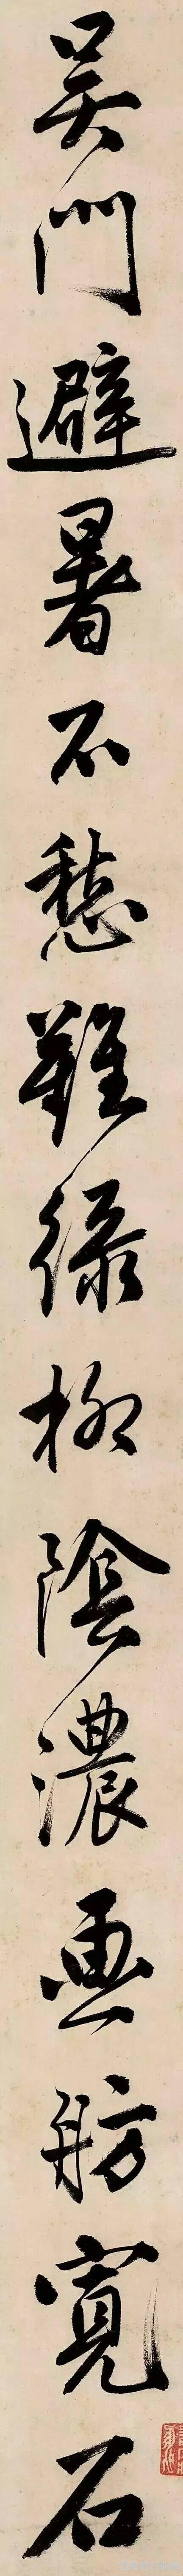 吴門避暑不愁難綠柳陰濃画舫寬石